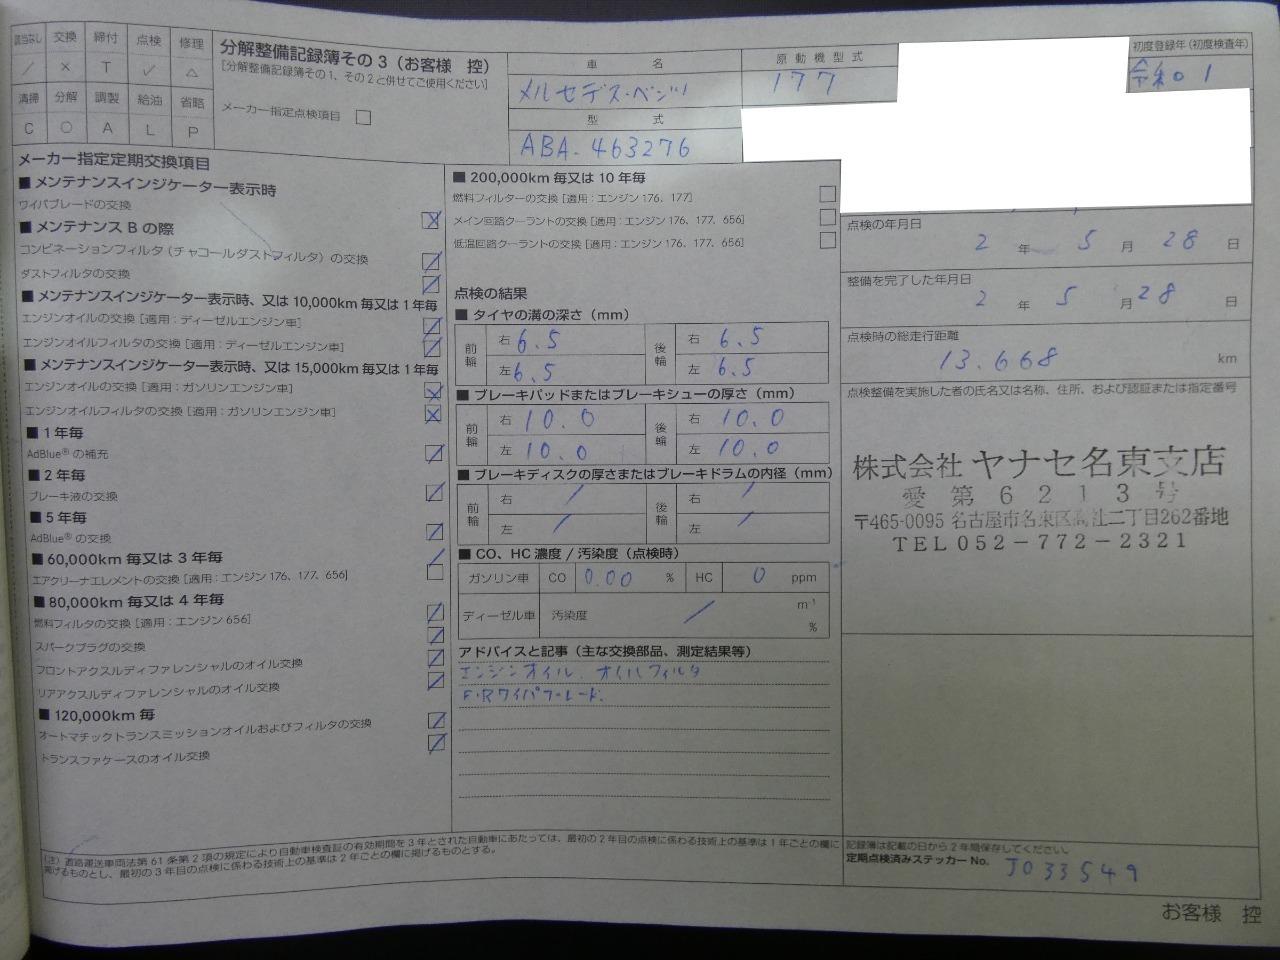 該当なし 交換 締付 点検 修理
/ × T ✓ △
清掃 分解 調製 給油 省略
C ○ A L P
分解整備記録簿その3（お客様 控）
[分解整備記録簿その1、その2と併せてご使用ください]
メーカー指定点検項目 □
車名
メルセデス・ベンツ
型式
ABA-463276
原動機型式
177
初度登録年（初度検査年）
令和 1
メーカー指定定期交換項目
■ メンテナンスインジケーター表示時
ワイパブレードの交換
■ メンテナンス B の際
コンビネーションフィルタ（チャコールダストフィルタ）の交換
ダストフィルタの交換
■ メンテナンスインジケーター表示時、又は 10,000km 毎又は 1 年毎
エンジンオイルの交換 [適用：ディーゼルエンジン車]
エンジンオイルフィルタの交換 [適用：ディーゼルエンジン車]
■ メンテナンスインジケーター表示時、又は 15,000km 毎又は 1 年毎
エンジンオイルの交換 [適用：ガソリンエンジン車]
エンジンオイルフィルタの交換 [適用：ガソリンエンジン車]
■ 1 年毎
AdBlue® の補充
■ 2 年毎
ブレーキ液の交換
■ 5 年毎
AdBlue® の交換
■ 60,000km 毎又は 3 年毎
エアクリーナエレメントの交換 [適用：エンジン 176、177、656]
■ 80,000km 毎又は 4 年毎
燃料フィルタの交換 [適用：エンジン 656]
スパークプラグの交換
フロントアクスルディファレンシャルのオイル交換
リアアクスルディファレンシャルのオイル交換
■ 120,000km 毎
オートマチックトランスミッションオイルおよびフィルタの交換
トランスファケースのオイル交換
■ 200,000km 毎又は 10 年毎
燃料フィルターの交換 [適用：エンジン 176、177]
メイン回路クーラントの交換 [適用：エンジン 176、177、656]
低温回路クーラントの交換 [適用：エンジン 176、177、656]
点検の結果
■ タイヤの溝の深さ（mm）
前輪 右 6.5 後輪 右 6.5
左 6.5 左 6.5
■ ブレーキパッドまたはブレーキシューの厚さ（mm）
前輪 右 10.0 後輪 右 10.0
左 10.0 左 10.0
■ ブレーキディスクの厚さまたはブレーキドラムの内径（mm）
前輪 右 / 後輪 右 /
左 / 左 /
■ CO、HC 濃度 / 汚染度（点検時）
ガソリン車 CO 0.00 % HC 0 ppm
ディーゼル車 汚染度 / m⁻¹
%
アドバイスと記事（主な交換部品、測定結果等）
エンジンオイル．オイルフィルタ
F・Rワイパブレード．
点検の年月日
2 年 5 月 28 日
整備を完了した年月日
2 年 5 月 28 日
点検時の総走行距離
13.668 km
点検整備を実施した者の氏名又は名称、住所、および認証または指定番号
株式会社 ヤナセ名東支店
愛第6213号
〒465-0095 名古屋市名東区高社二丁目262番地
TEL 052-772-2321
（注）道路運送車両法第 61 条第 2 項の規定により自動車検査証の有効期間を 3 年とされた自動車にあたっては、最初の 2 年目の点検に係わる技術上の基準は 1 年ごとの欄に
掲げるものとし、最初の 3 年目の点検に係わる技術上の基準は 2 年ごとの欄に掲げるものとする。
記録簿は記載の日から 2 年間保存してください。
定期点検済みステッカー No. J033549
お客様 控